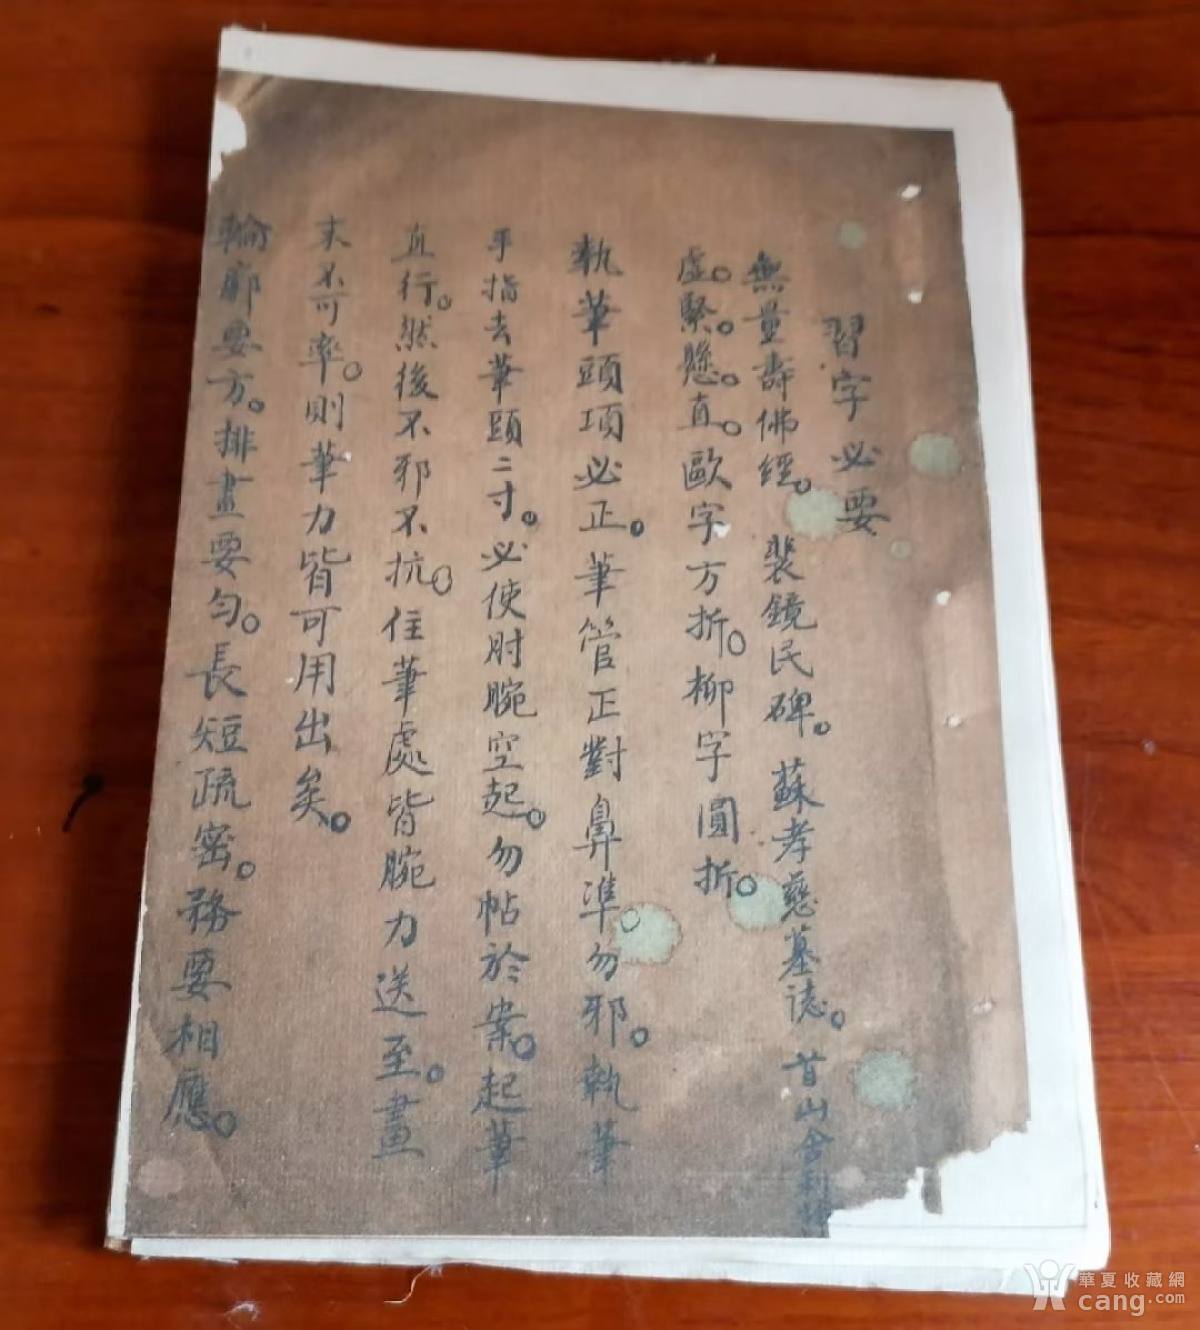 習字必要
無量壽佛經。裴鏡民碑。蘇孝慈墓誌。首山舍利
虛。緊。懸。直。歐字方折。柳字圓折。
執筆頭項必正。筆管正對鼻準。勿邪。執筆
手指去筆頭二寸。必使肘腕空起。勿帖於案。起筆
直行。然後不邪不抗。住筆處皆腕力送至。畫
末不可率。則筆力皆可用出矣。
輪廓要方。排畫要勻。長短疏密。務要相應。
華夏收藏網
cang.com